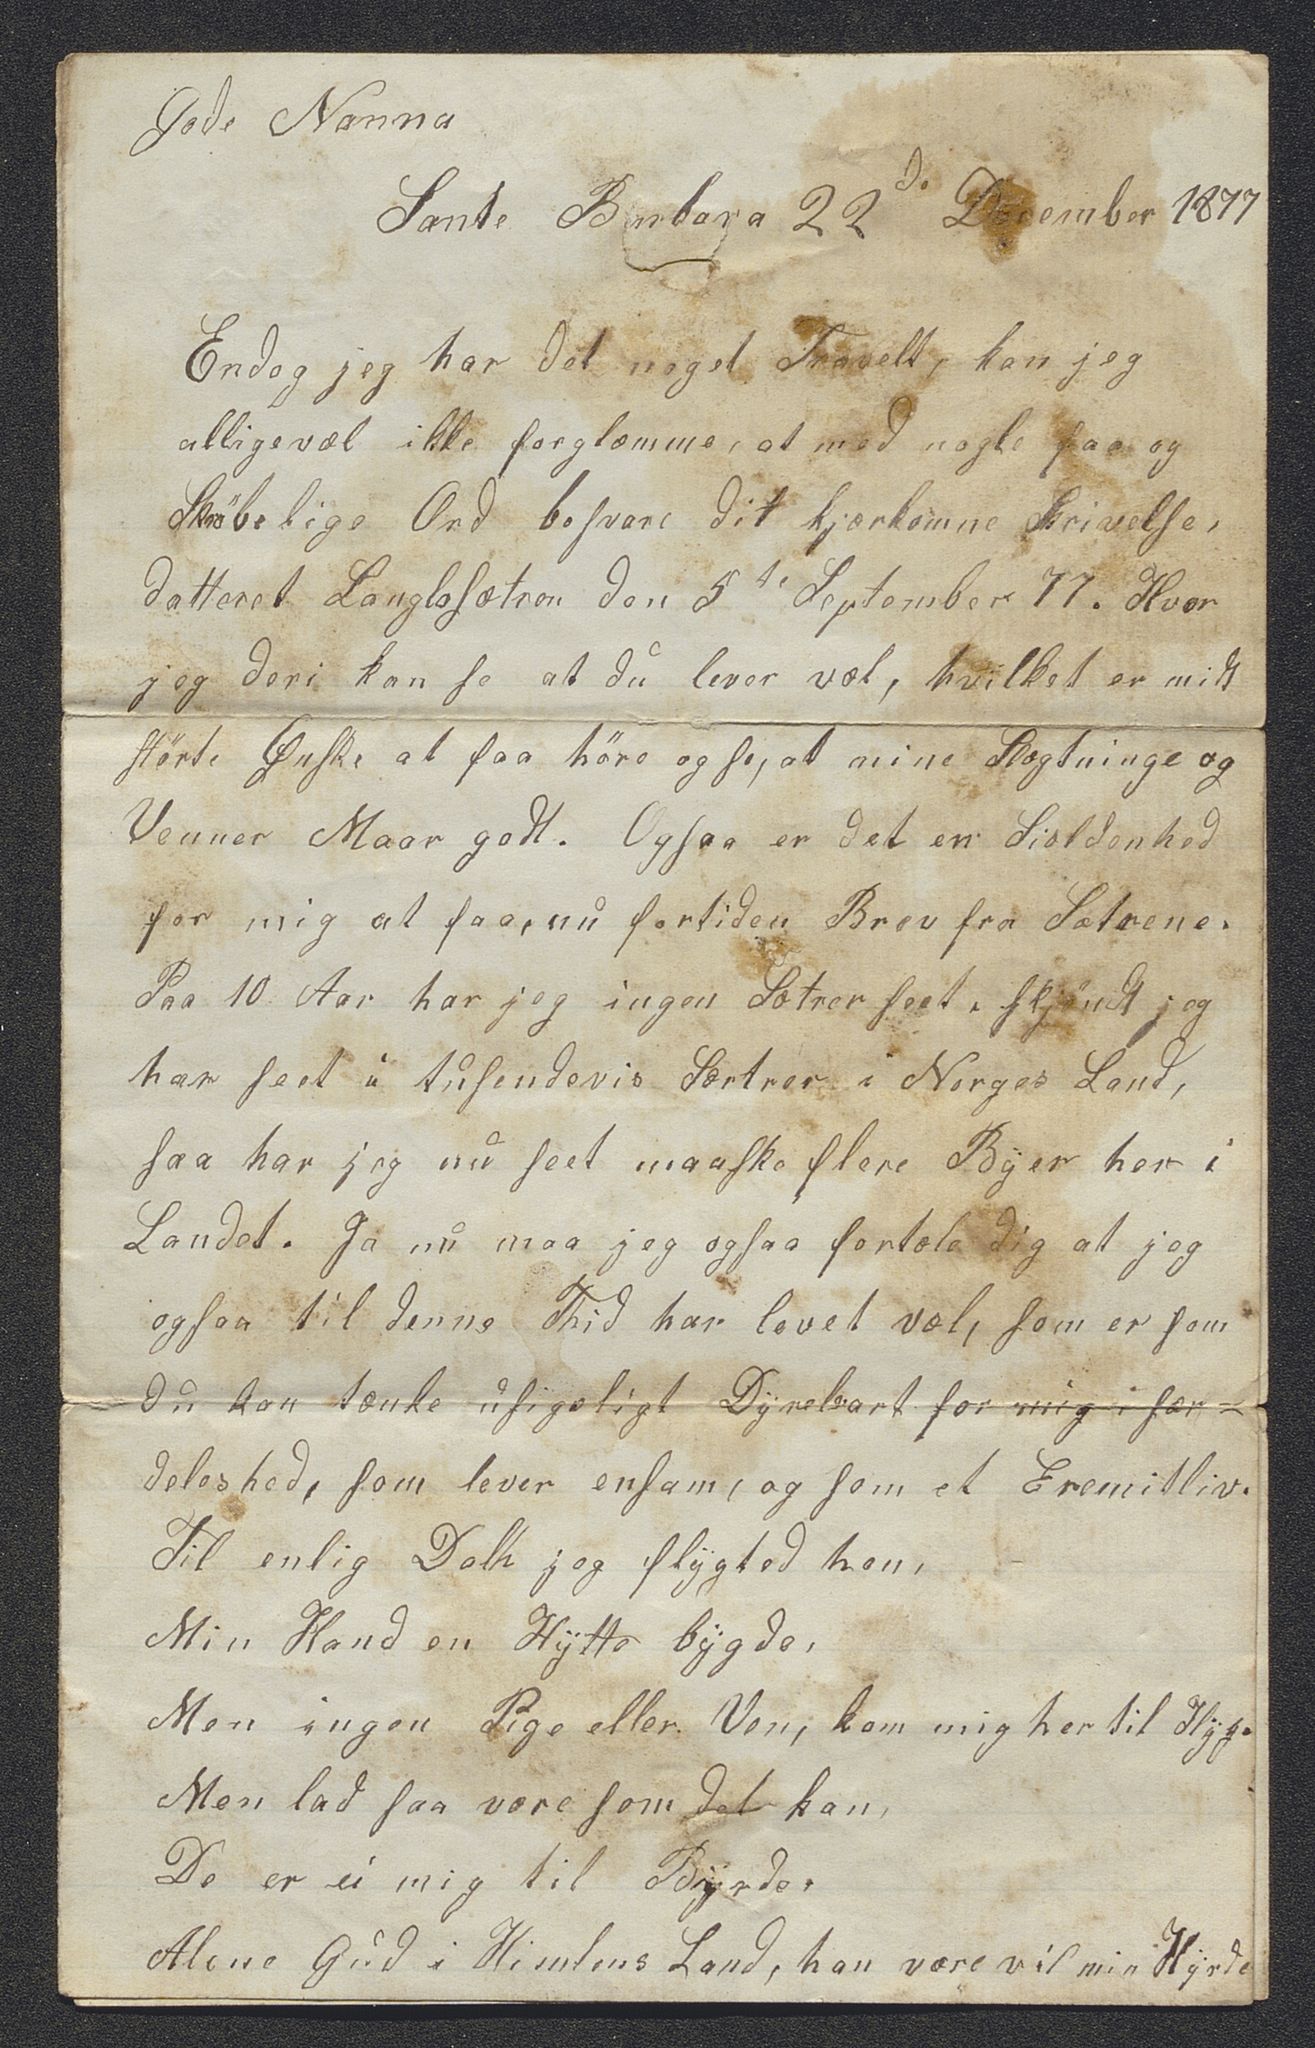 Gode Nanna
Sante Barbara 22de December 1877
Endog jeg har det noget Travelt, kan jeg
alligevæl ikke forglemme, at med nogle faa og
Skrøbelige Ord besvare dit kjærkomne Skrivelse,
datteret Langlosætren den 5te September 77. Hvor
jeg deri kan se at du lever væl, hvilket er midt
störte Ønske at faa höre og se, at mine Slægtninge og
Venner Maar godt. Ogsaa er det en Sieldenhed
for mig at faa, nu fortiden Brev fra Sætrene.
Paa 10 Aar har jeg ingen Sætrer seet. skjöndt jeg
har seet i tusendevis Sætrer i Norges Land,
saa har jeg nu seet maaske flere Byer her i
Landet. Ja nu maa jeg ogsaa fortæle dig at jeg
ogsaa til denne Thid har levet væl, som er som
du kan tænke usigeligt Dyrebart for mig i sær-
deleshed, som lever ensam, og som et Eremitliv.
Til enlig Dalh jeg flygted hen,
Min Hand en Hytte bygde,
Men ingen Pige eller Ven, kom mig her til Hyg.
Men lad saa være som det kan,
De er ei mig til Byrde.
Alene Gud i Himlens Land, han være vil min Hyrde